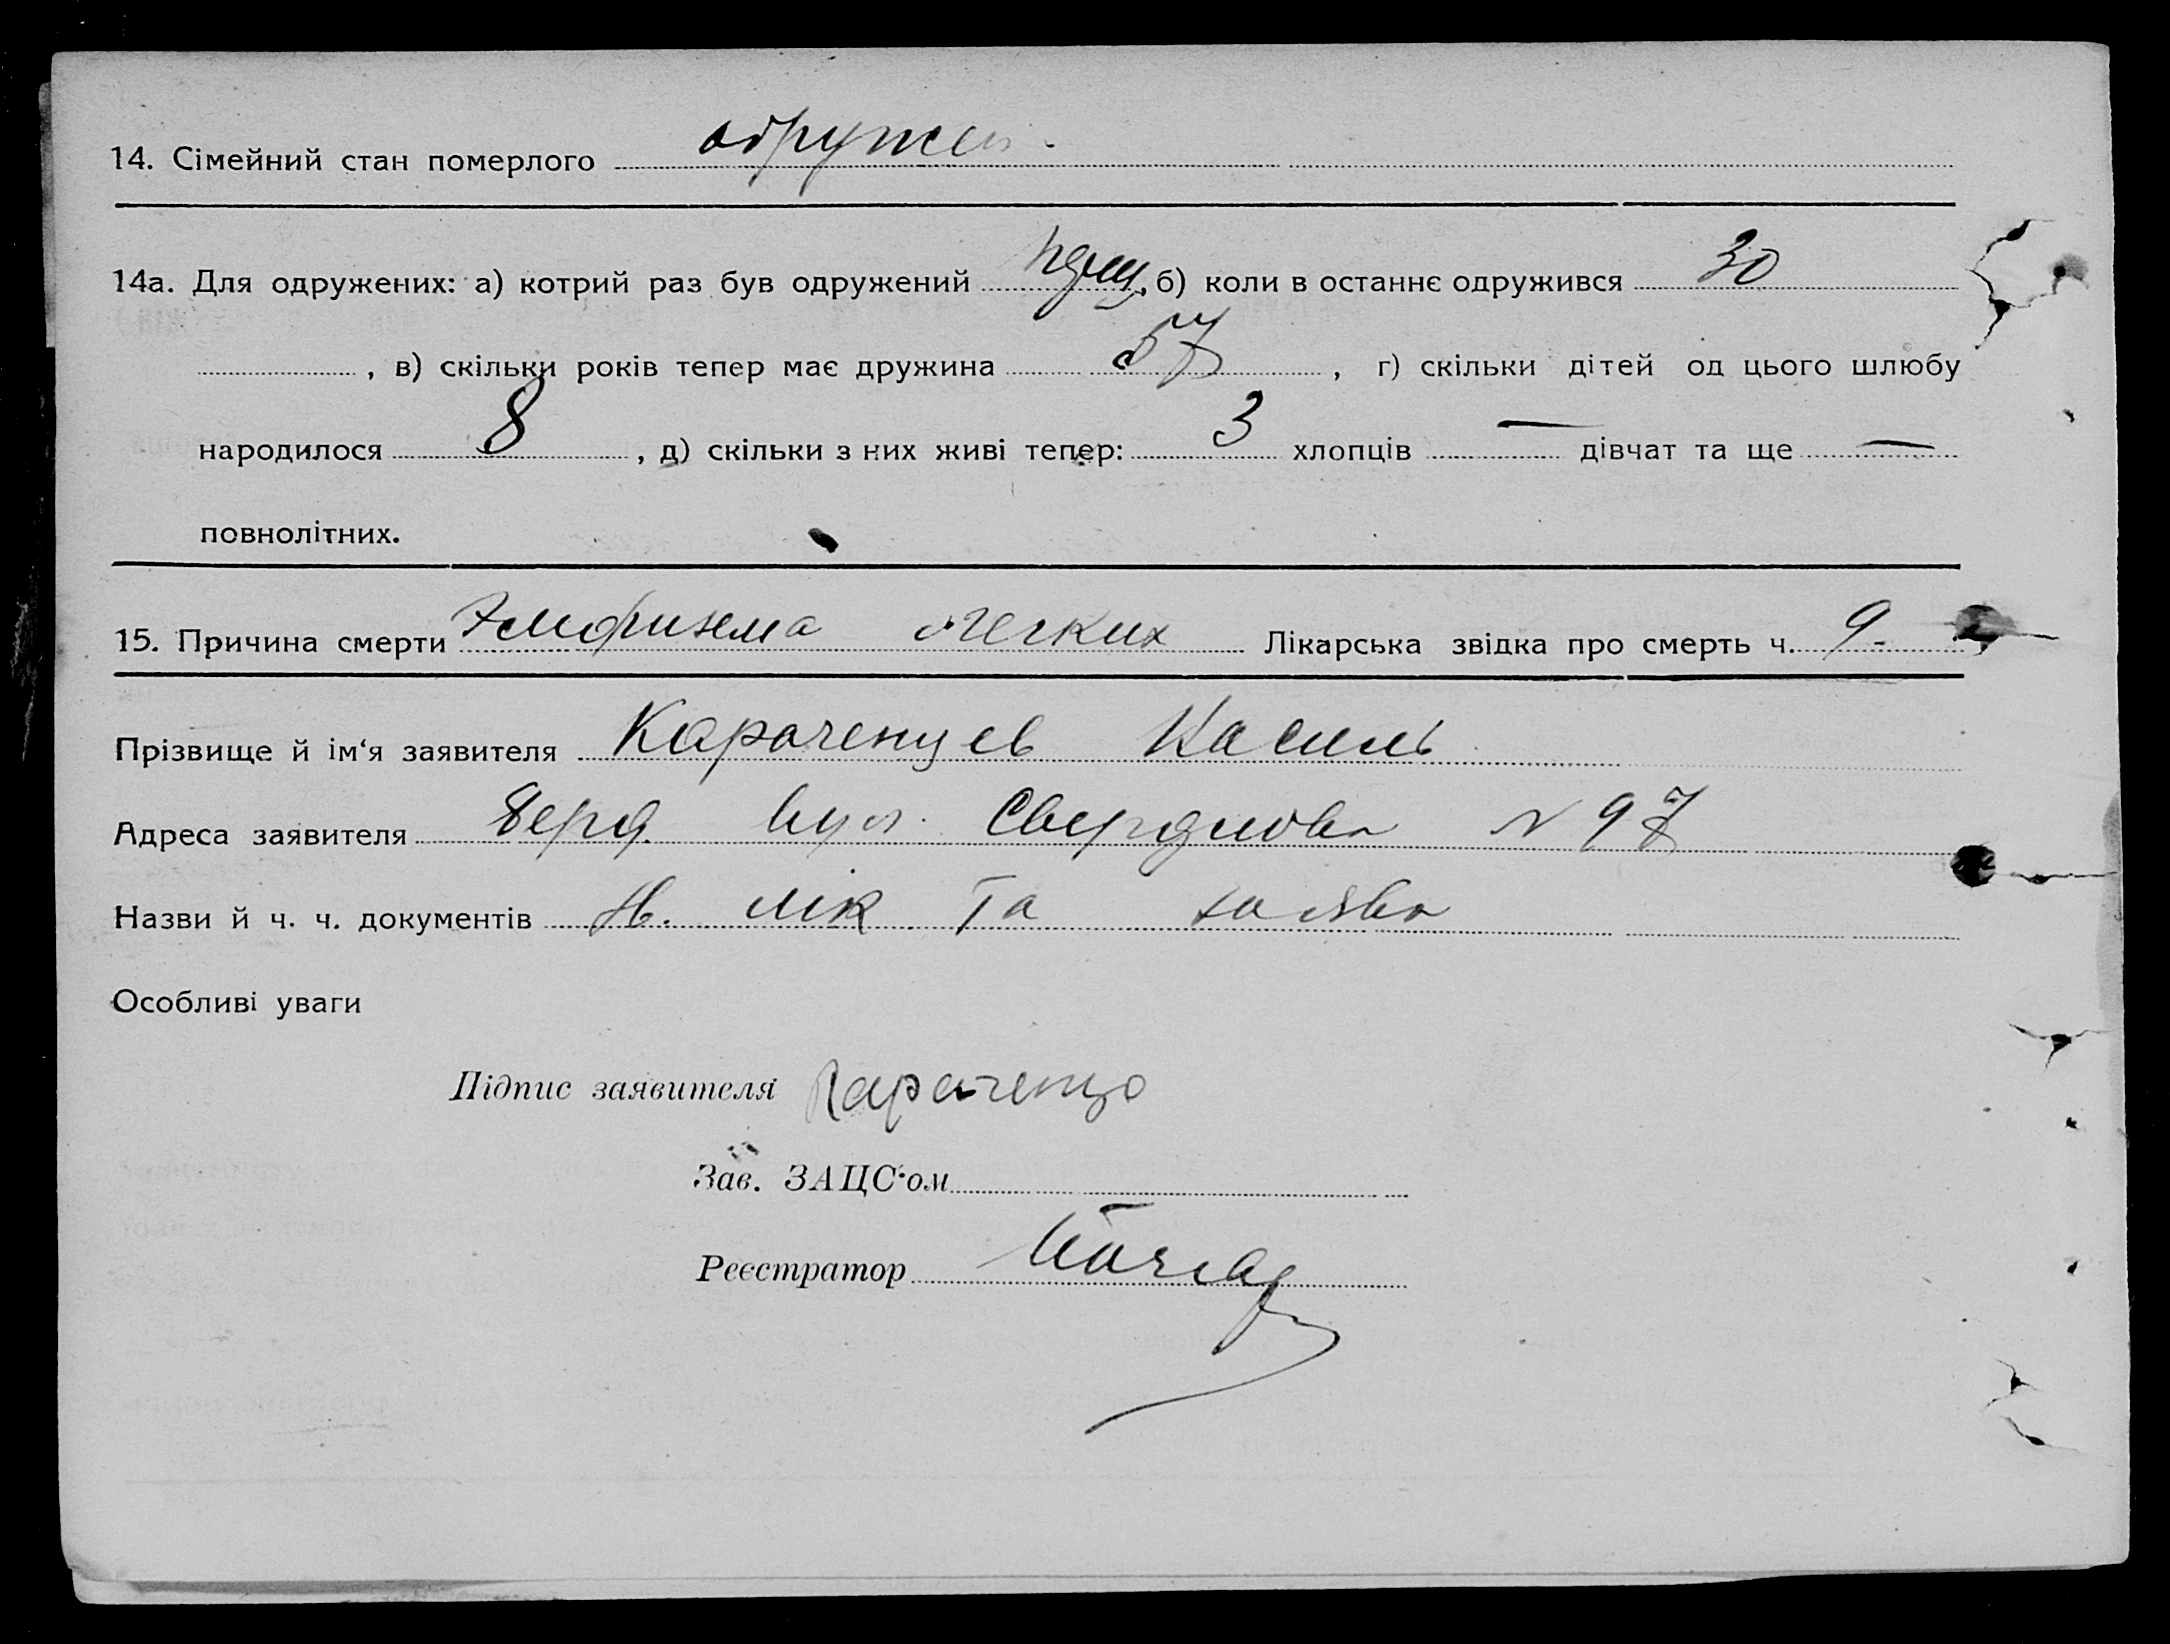 14. Сімейний стан померлого одружен.
14а. Для одружених: а) котрий раз був одружений , б) коли в останнє одружився 30
, в) скільки років тепер має дружина 57 , г) скільки дітей од цього шлюбу
народилося 8 , д) скільки з них живі тепер: 3 хлопців — дівчат та ще —
повнолітних.
15. Причина смерти Эмфизема легких Лікарська звідка про смерть ч. 9-
Прізвище й ім‘я заявителя Караченцев Василь
Адреса заявителя Берд. вул. Свердлова N 97
Назви й ч. ч. документів лік та заява
Особливі уваги
Підпис заявителя Караченцо
Зав. ЗАЦС‘ом
Реєстратор